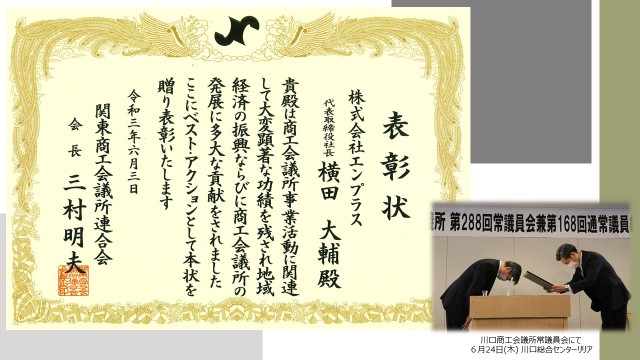 表彰状
株式会社エンプラス
代表取締役社長 横田 大輔 殿
貴殿は商工会議所事業活動に関連
して大変顕著な功績を残され地域
経済の振興ならびに商工会議所の
発展に多大な貢献をされました
ここにベスト・アクションとして本状を
贈り表彰いたします
令和三年六月三日
関東商工会議所連合会
会長 三村明夫
議所 第288回常議員会兼第168回通常議員総
川口商工会議所常議員会にて
6月24日(木) 川口総合センターリリア